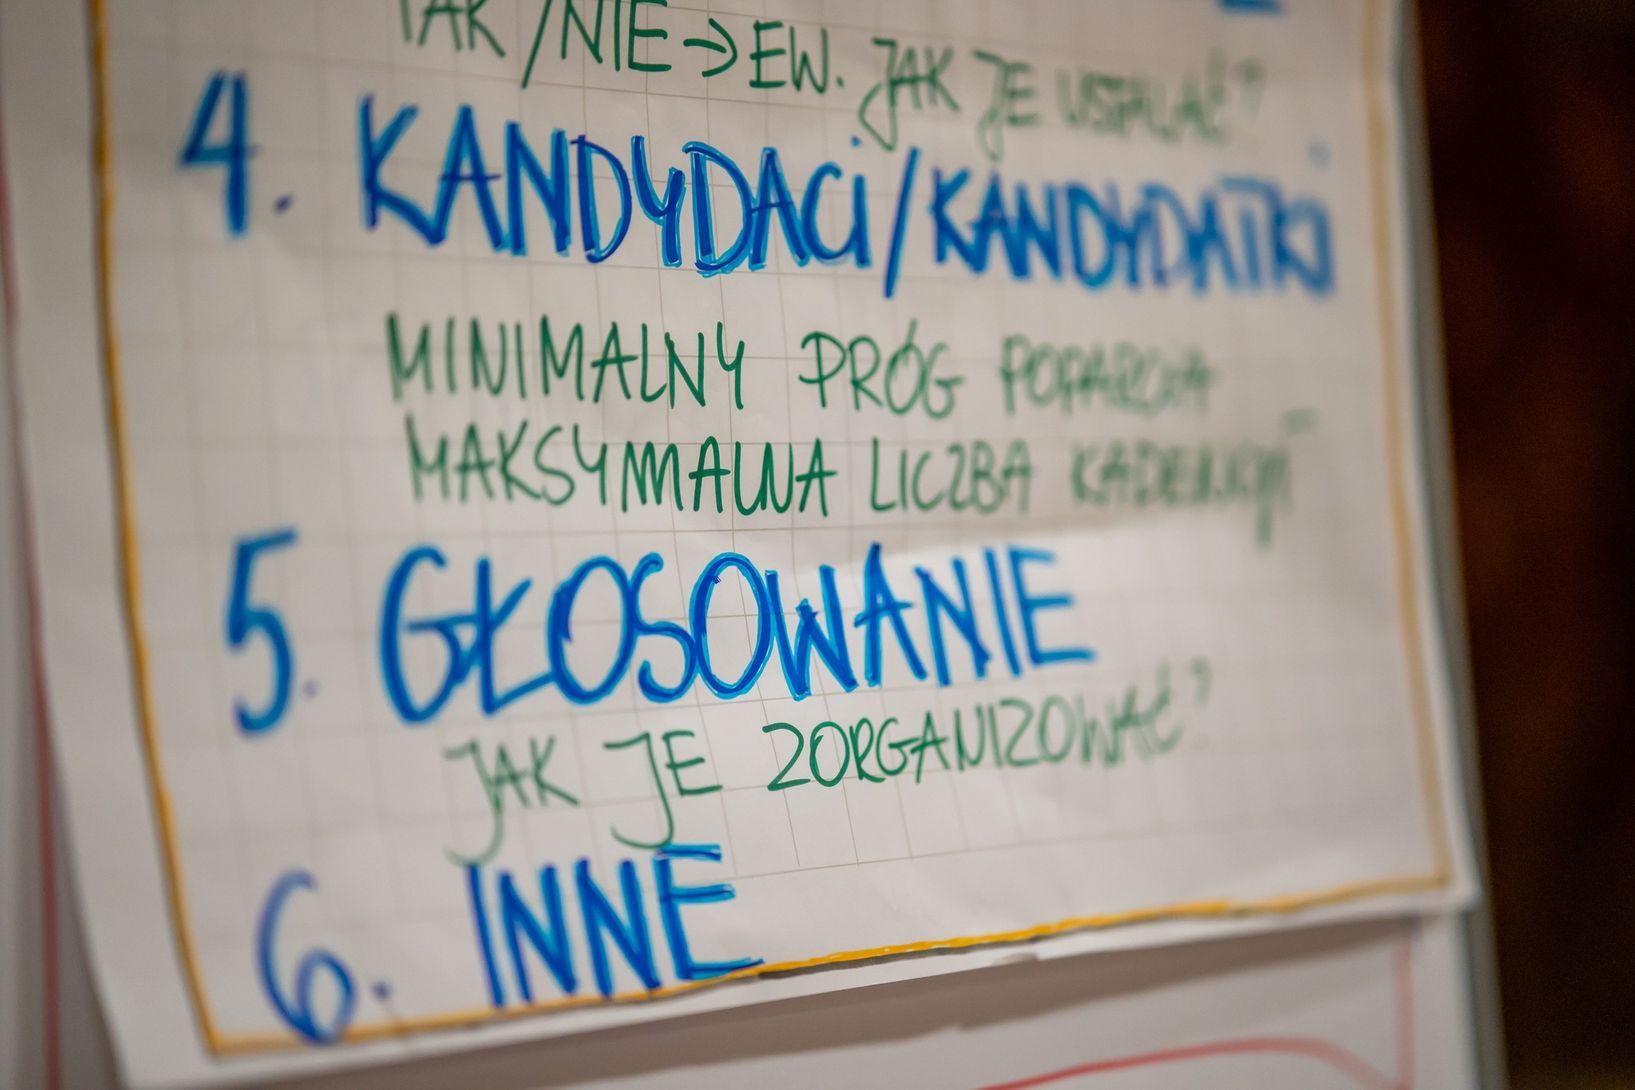 TAK/NIE → EW. JAK JE USTALAĆ?
4. KANDYDACI/KANDYDATKI
MINIMALNY PRÓG POPARCIA
MAKSYMALNA LICZBA KADENCJI
5. GŁOSOWANIE
JAK JE ZORGANIZOWAĆ?
6. INNE